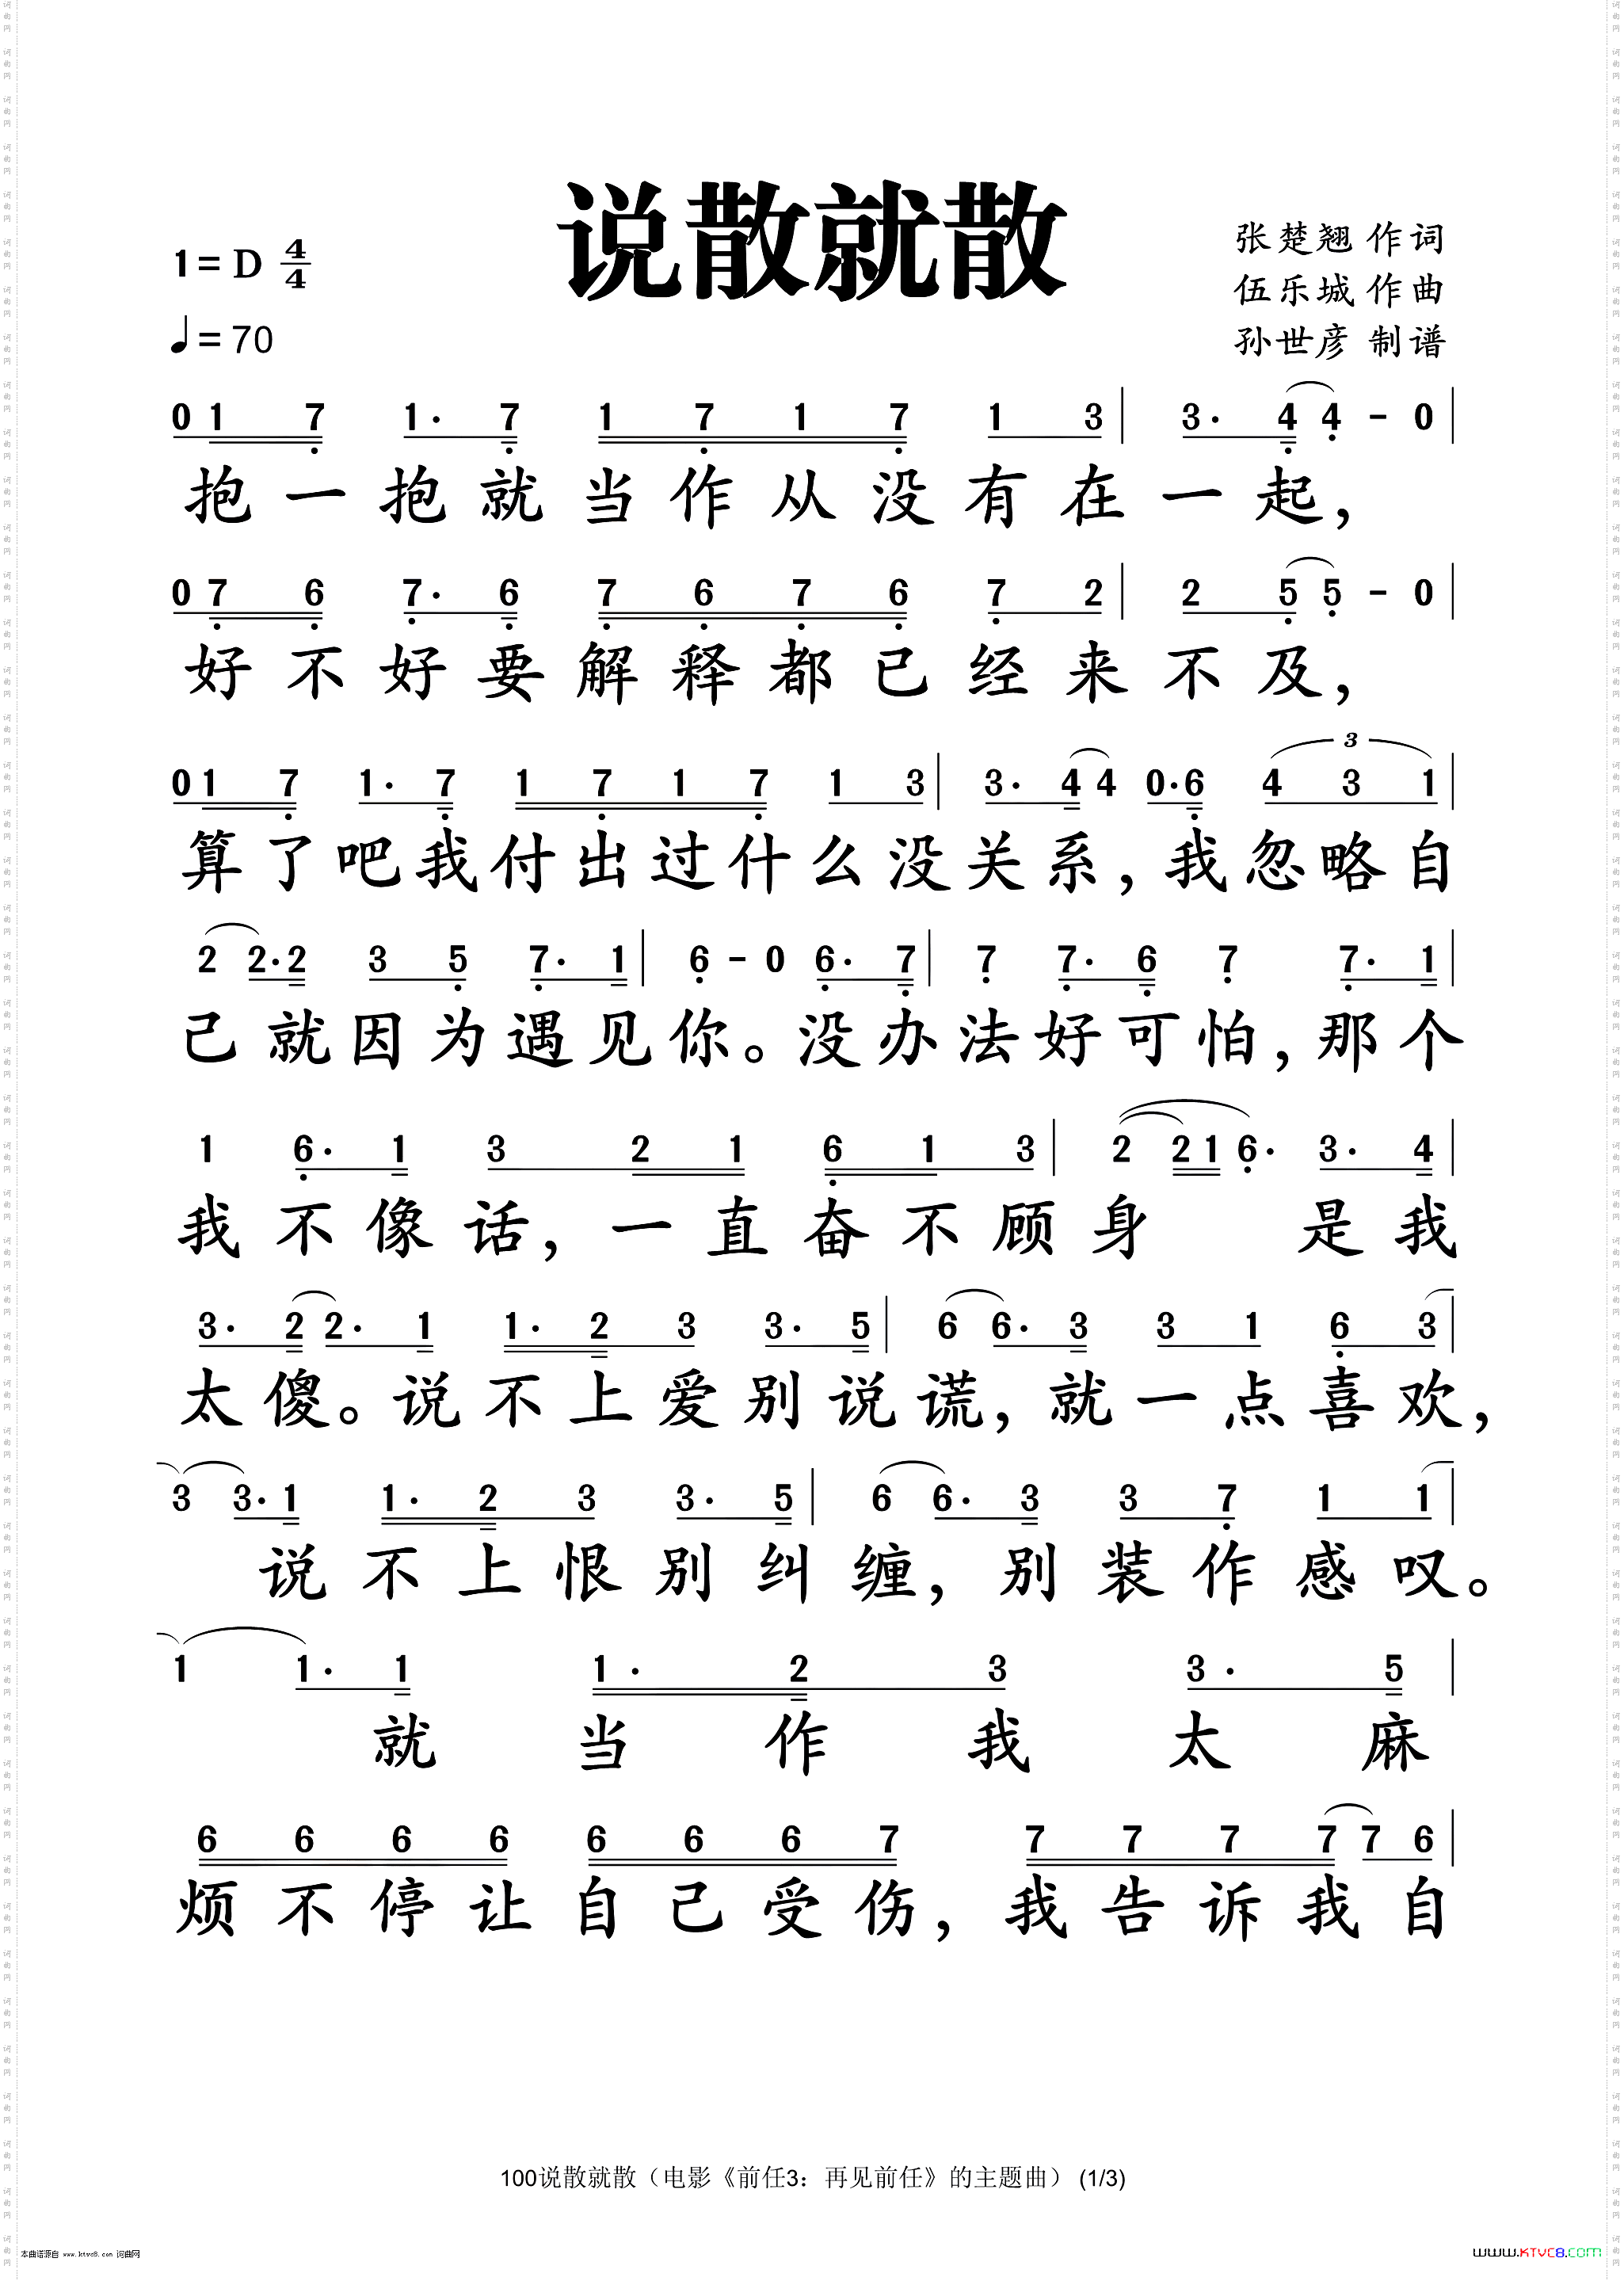 说散就散
1= D 4/4
♩= 70
张楚翘 作词
伍乐城 作曲
孙世彦 制谱
0 1 7 1· 7 1 7 1 7 1 3 | 3· 4 4 - 0 |
抱一抱就当作从没有在一起，
0 7 6 7· 6 7 6 7 6 7 2 | 2 5 5 - 0 |
好不好要解释都已经来不及，
0 1 7 1· 7 1 7 1 7 1 3 | 3· 4 4 0· 6 4 3 1 |
3
算了吧我付出过什么没关系，我忽略自
2 2· 2 3 5 7· 1 | 6 - 0 6· 7 | 7 7· 6 7 7· 1 |
己就因为遇见你。没办法好可怕，那个
1 6· 1 3 2 1 6 1 3 | 2 2 1 6· 3· 4 |
我不像话，一直奋不顾身 是我
3· 2 2· 1 1· 2 3 3· 5 | 6 6· 3 3 1 6 3 |
太傻。说不上爱别说谎，就一点喜欢，
3 3· 1 1· 2 3 3· 5 | 6 6· 3 3 7 1 1 |
说不上恨别纠缠，别装作感叹。
1 1· 1 1· 2 3 3· 5 |
就当作我太麻
6 6 6 6 6 6 6 7 7 7 7 7 7 6 |
烦不停让自己受伤，我告诉我自
100说散就散（电影《前任3：再见前任》的主题曲） (1/3)
本曲谱源自 www.ktvc8.com 词曲网
www.KTVC8.com